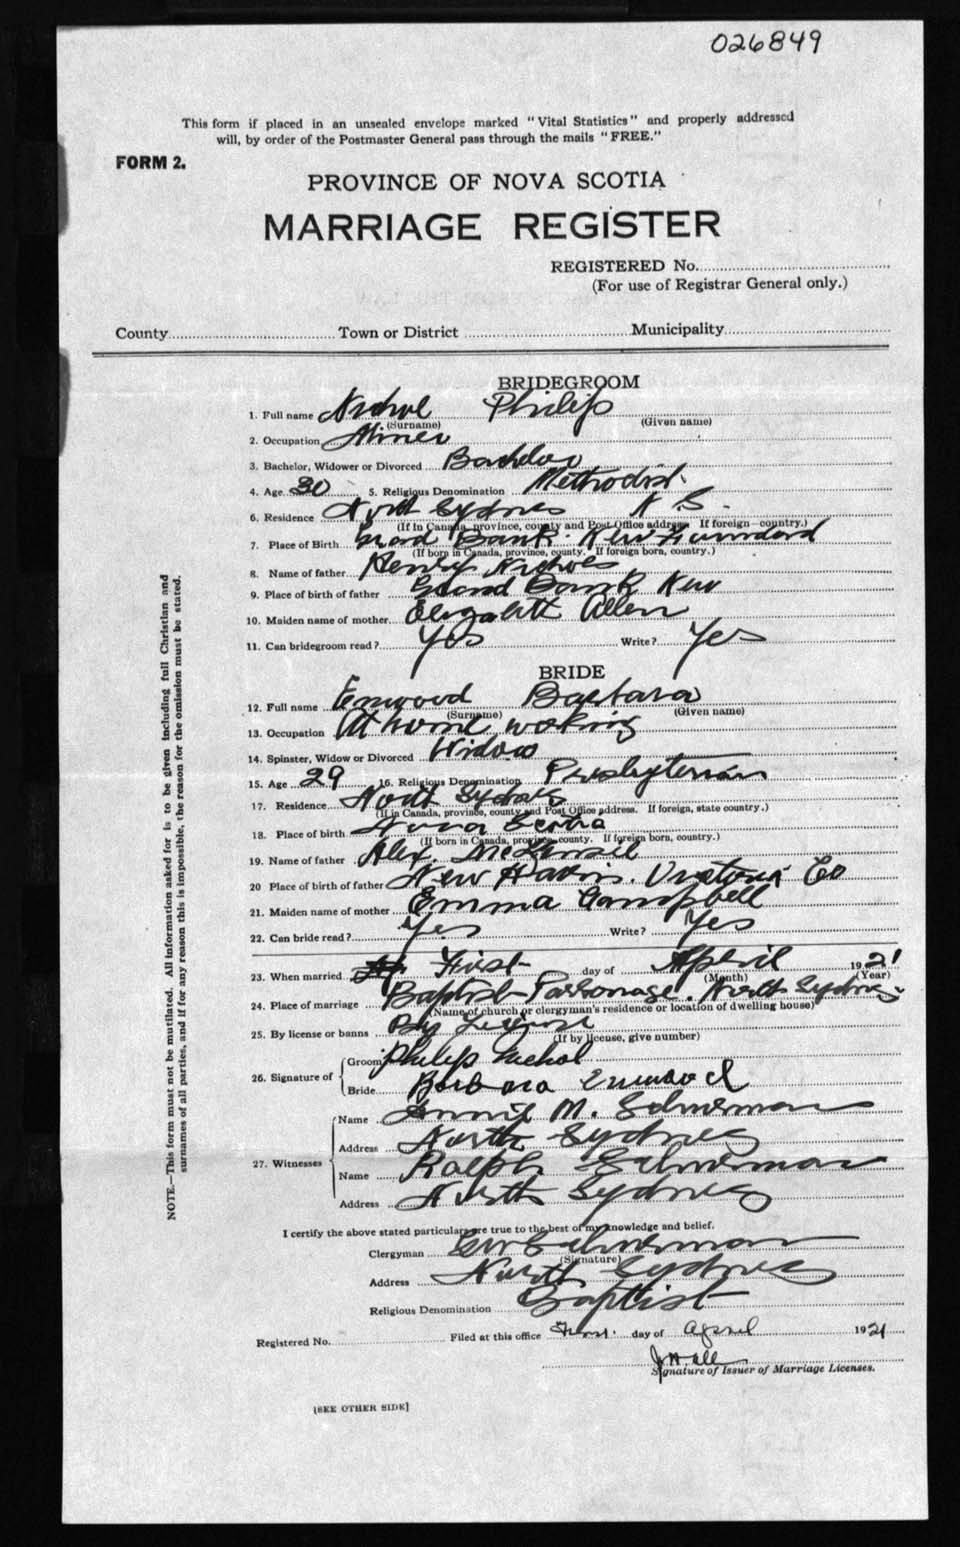 026849
This form if placed in an unsealed envelope marked "Vital Statistics" and properly addressed
will, by order of the Postmaster General pass through the mails "FREE."
FORM 2.
PROVINCE OF NOVA SCOTIA
MARRIAGE REGISTER
REGISTERED No.
(For use of Registrar General only.)
County Town or District Municipality
BRIDEGROOM
1. Full name Nichol Philip
(Surname) (Given name)
2. Occupation Miner
3. Bachelor, Widower or Divorced Bachelor
4. Age 30 5. Religious Denomination Methodist.
6. Residence North Sydney N S.
(If in Canada, province, county and Post Office address. If foreign—country.)
7. Place of Birth Grand Bank. New Foundland
(If born in Canada, province, county. If foreign born, country.)
8. Name of father Henry Nichols
9. Place of birth of father Grand Bank New
10. Maiden name of mother Elizabeth Allen
11. Can bridegroom read? Yes Write? Yes
BRIDE
12. Full name Enwood Barbara
(Surname) (Given name)
13. Occupation At home woking
14. Spinster, Widow or Divorced Widow
15. Age 29 16. Religious Denomination Presbyterian
17. Residence North Sydney
(If in Canada, province, county and Post Office address. If foreign, state country.)
18. Place of birth Nova Scotia
(If born in Canada, province, county. If foreign born, country.)
19. Name of father Alex. McKensie
20 Place of birth of father New Haven. Victoria Co
21. Maiden name of mother Emma Campbell
22. Can bride read? Yes Write? Yes
23. When married First day of April 1921
(Month) (Year)
24. Place of marriage Baptist Parsonage. North Sydney.
(Name of church or clergyman's residence or location of dwelling house)
25. By license or banns By License
(If by license, give number)
26. Signature of
Groom Philip Nichol
Bride Barbara Enwood
27. Witnesses
Name Annie M. Schurman
Address North Sydney
Name Ralph Schurman
Address North Sydney
I certify the above stated particulars are true to the best of my knowledge and belief.
Clergyman Schurman
(Signature)
Address North Sydney
Religious Denomination Baptist
Registered No. Filed at this office First. day of April 1921
Signature of Issuer of Marriage Licenses.
[SEE OTHER SIDE]
NOTE.—This form must not be mutilated. All information asked for is to be given including full Christian and
surnames of all parties, and if for any reason this is impossible, the reason for the omission must be stated.